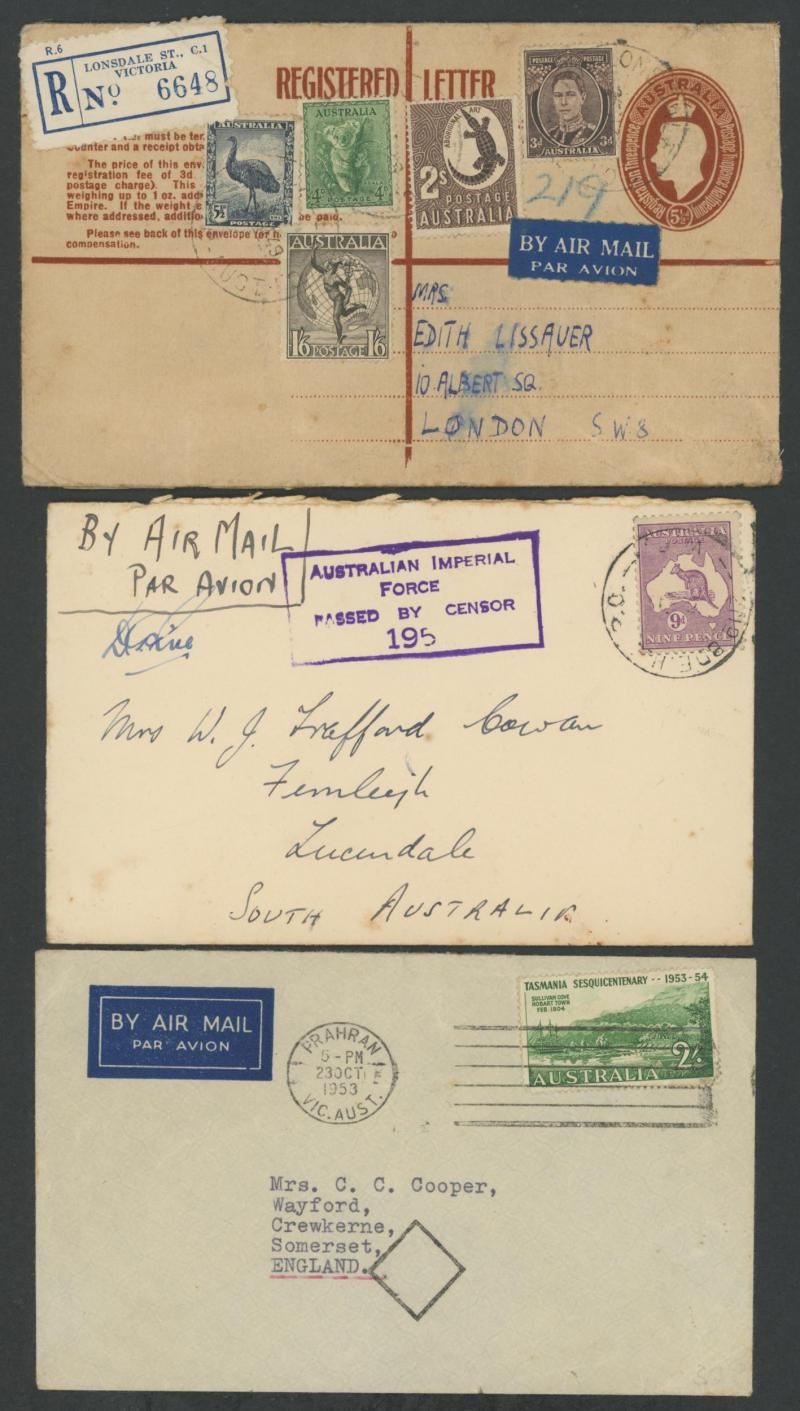 R.6
LONSDALE ST., C.1
VICTORIA
R No 6648
REGISTERED LETTER
must be
counter and a receipt
The price of this
registration fee of 3d
postage charge). This
weighing up to 1 oz.
Empire. If the weight
where addressed, be paid.
Please see back of this envelope for to
compensation.
AUSTRALIA
5½D
POSTAGE
AUSTRALIA
4D POSTAGE 4D
ABORIGINAL ART
2S
POSTAGE
AUSTRALIA
POSTAGE POSTAGE
3d 3d
AUSTRALIA
AUSTRALIA
5½D
219
BY AIR MAIL
PAR AVION
AUSTRALIA
1/6 POSTAGE 1/6
MRS
EDITH LISSAUER
10 ALBERT SQ.
LONDON SW8
BY AIR MAIL
PAR AVION
AUSTRALIAN IMPERIAL
FORCE
PASSED BY CENSOR
195
AUSTRALIA
POSTAGE
9d
NINE PENCE
Mrs W. J. Trafford Cowan
Fernleigh
Lucindale
SOUTH AUSTRALIA
BY AIR MAIL
PAR AVION
PRAHRAN
5-PM
23OCT
1953
VIC.AUST.
TASMANIA SESQUICENTENARY -- 1953-54
SULLIVAN COVE
HOBART TOWN
FEB. 1804
2/-
AUSTRALIA
Mrs. C. C. Cooper,
Wayford,
Crewkerne,
Somerset,
ENGLAND.